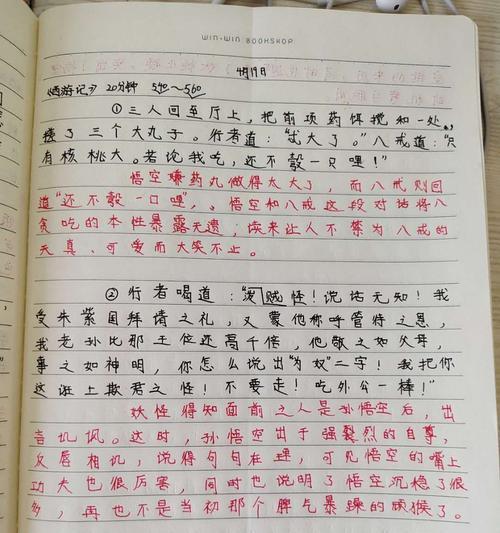 WIN-WIN BOOKSHOP
4月19日
《西游记》 20分钟 540~560
①三人回至厅上,把前项药饵搅和一处,
搓了三个大丸子。行者道:“忒大了。”八戒道:“只
有核桃大。若论我吃,还不彀一口哩!”
悟空嫌药丸做得太大了,而八戒则回
道“还不彀一口哩”,悟空和八戒这段对话将八
贪吃的本性暴露无遗,读来让人不禁为八戒的
天真、可爱而大笑不止。
②行者喝道:“泼贼怪!说话无知!我
受朱紫国拜请之礼,又蒙他称呼管待之恩,
我老孙比那王位还高千倍,他敬之如父母,
事之如神明,你怎么说出“为奴”二字!我把你
这诳上欺君之怪!不要走!吃外公一棒!”
妖怪得知面前之人是孙悟空后,出
言讥讽。这时,孙悟空出于强烈的自尊,
反唇相讥,说得句句在理,可见悟空的嘴上
功夫也很厉害,同时也说明了悟空沉稳了很
多,再也不是当初那个脾气暴躁的顽猴了。